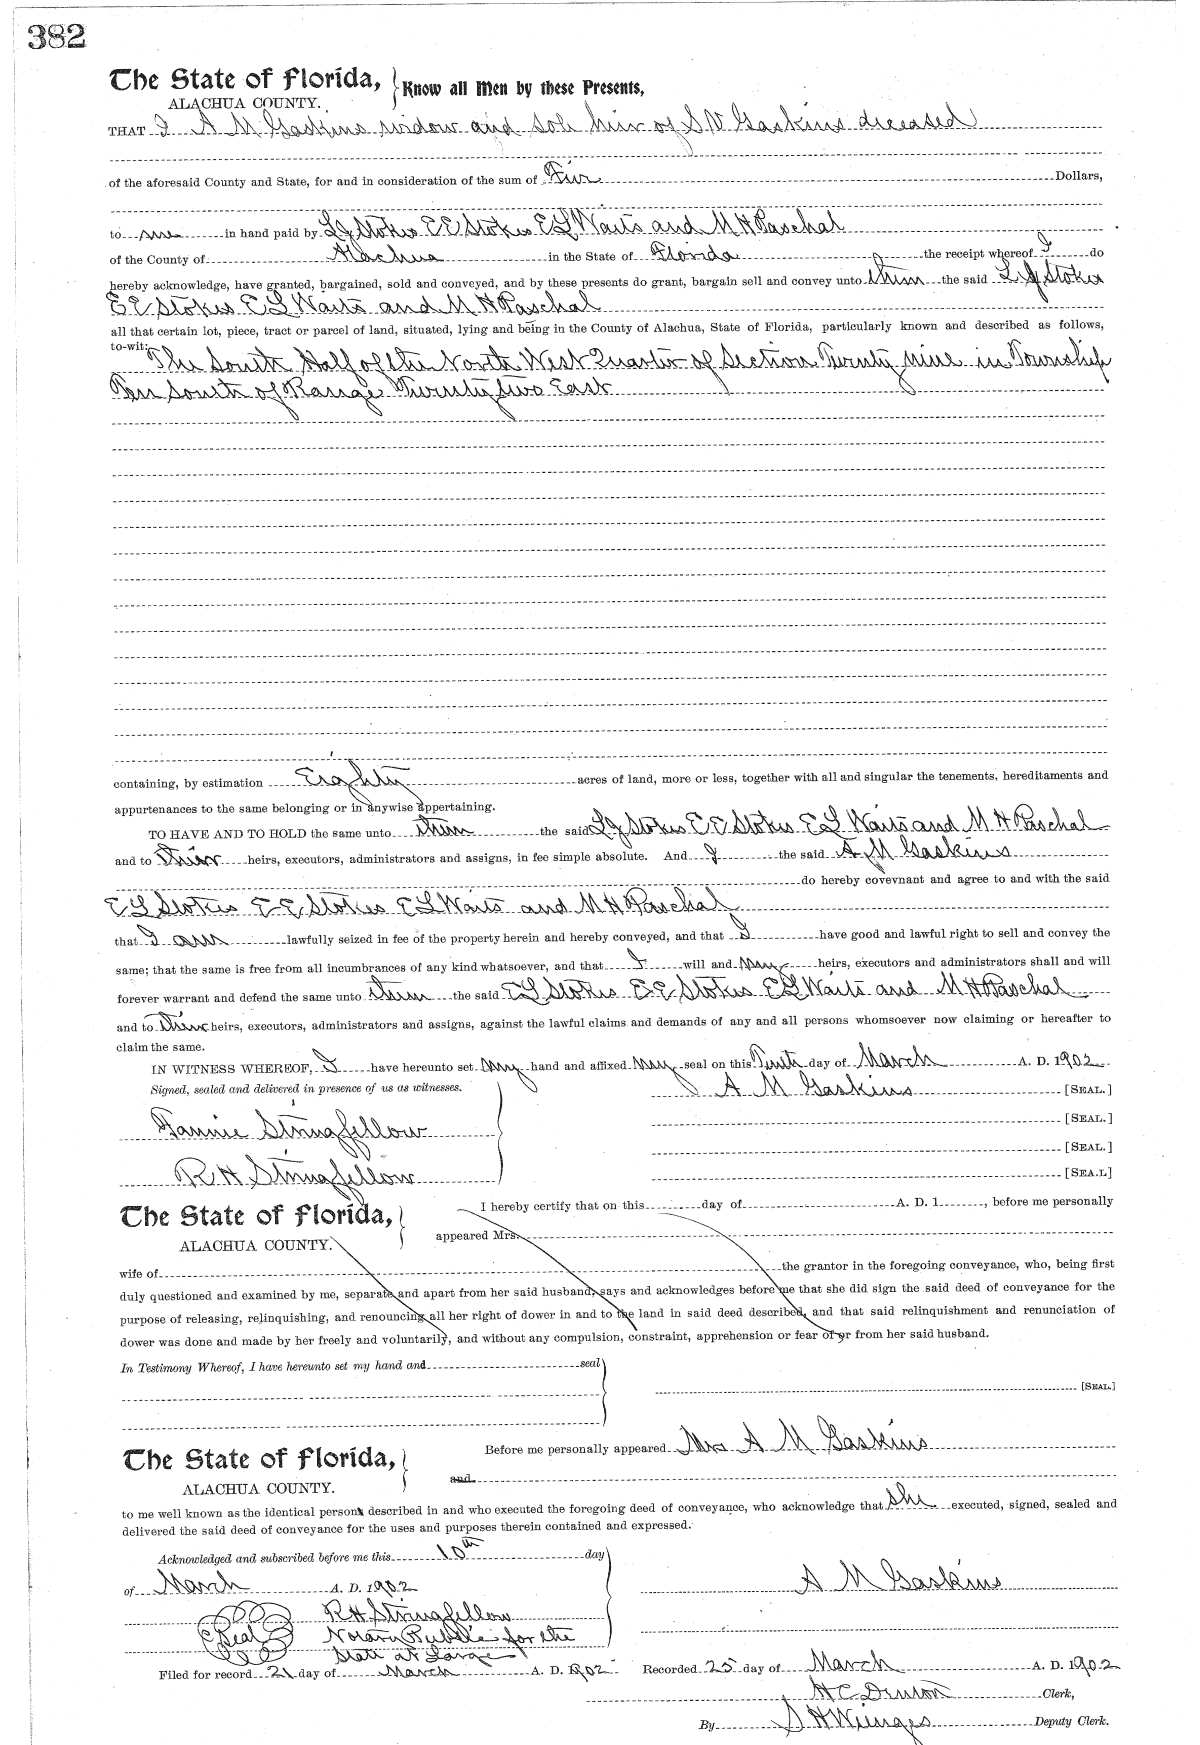 382
The State of Florida, Know all Men by these Presents,
ALACHUA COUNTY.
THAT I A M Gaskins widow and sole heir of S V Gaskins deceased
of the aforesaid County and State, for and in consideration of the sum of Five Dollars,
to me in hand paid by L J Stokes E E Stokes E L Waits and M H Paschal
of the County of Alachua in the State of Florida the receipt whereof I do
hereby acknowledge, have granted, bargained, sold and conveyed, and by these presents do grant, bargain sell and convey unto them the said L J Stokes
E E Stokes E L Waits and M H Paschal
all that certain lot, piece, tract or parcel of land, situated, lying and being in the County of Alachua, State of Florida, particularly known and described as follows,
to-wit: The South Half of the North West Quarter of Section Twenty nine in Township
Ten South of Range Twenty two East
containing, by estimation Eighty acres of land, more or less, together with all and singular the tenements, hereditaments and
appurtenances to the same belonging or in anywise appertaining.
TO HAVE AND TO HOLD the same unto them the said L J Stokes E E Stokes E L Waits and M H Paschal
and to their heirs, executors, administrators and assigns, in fee simple absolute. And I the said A M Gaskins
do hereby covevnant and agree to and with the said
E L Stokes E E Stokes E L Waits and M H Paschal
that I am lawfully seized in fee of the property herein and hereby conveyed, and that I have good and lawful right to sell and convey the
same; that the same is free from all incumbrances of any kind whatsoever, and that I will and my heirs, executors and administrators shall and will
forever warrant and defend the same unto them the said E L Stokes E E Stokes E L Waits and M H Paschal
and to their heirs, executors, administrators and assigns, against the lawful claims and demands of any and all persons whomsoever now claiming or hereafter to
claim the same.
IN WITNESS WHEREOF, I have hereunto set my hand and affixed my seal on this Tenth day of March A. D. 1902
Signed, sealed and delivered in presence of us as witnesses. A M Gaskins [SEAL.]
[SEAL.]
Fannie Stringfellow
[SEAL.]
R H Stringfellow [SEA.L]
The State of Florida, I hereby certify that on this day of A. D. 1 , before me personally
ALACHUA COUNTY. appeared Mrs.
wife of the grantor in the foregoing conveyance, who, being first
duly questioned and examined by me, separate and apart from her said husband, says and acknowledges before me that she did sign the said deed of conveyance for the
purpose of releasing, relinquishing, and renouncing all her right of dower in and to the land in said deed described, and that said relinquishment and renunciation of
dower was done and made by her freely and voluntarily, and without any compulsion, constraint, apprehension or fear of or from her said husband.
In Testimony Whereof, I have hereunto set my hand and seal
[SEAL.]
The State of Florida, Before me personally appeared Mrs A M Gaskins
ALACHUA COUNTY. and
to me well known as the identical persons described in and who executed the foregoing deed of conveyance, who acknowledge that she executed, signed, sealed and
delivered the said deed of conveyance for the uses and purposes therein contained and expressed.
Acknowledged and subscribed before me this 10th day
of March A. D. 1902 A M Gaskins
R H Stringfellow
Seal Notary Public for the
State at Large
Filed for record 21 day of March A. D. 1902 Recorded 25 day of March A. D. 1902
H C Denton Clerk,
By S H Wienges Deputy Clerk.